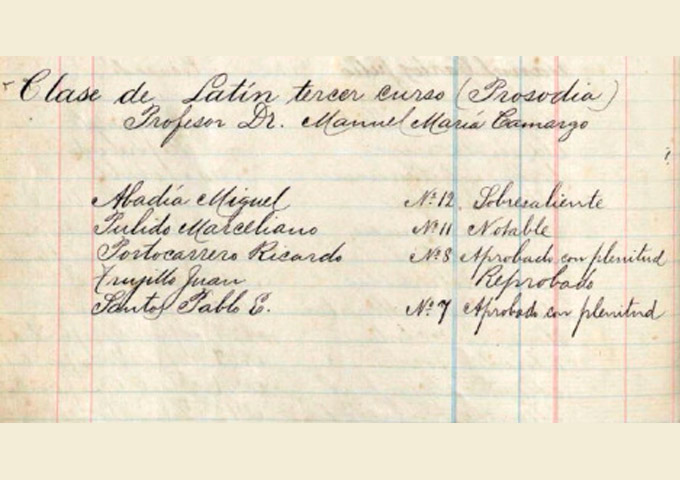 Clase de Latín tercer curso (Prosodia)
Profesor Dr. Manuel María Camargo
Abadía Miguel Nº 12. Sobresaliente
Pulido Marceliano Nº 11 Notable
Portocarrero Ricardo Nº 8 Aprobado con plenitud
Trujillo Juan Reprobado
Santos Pablo E. Nº 7 Aprobado con plenitud